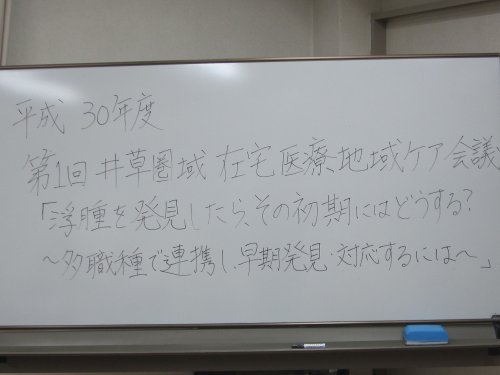 平成 30年度
第1回 井草圏域 在宅医療地域ケア会議
「浮腫を発見したら、その初期にはどうする?
～多職種で連携し、早期発見・対応するには～」